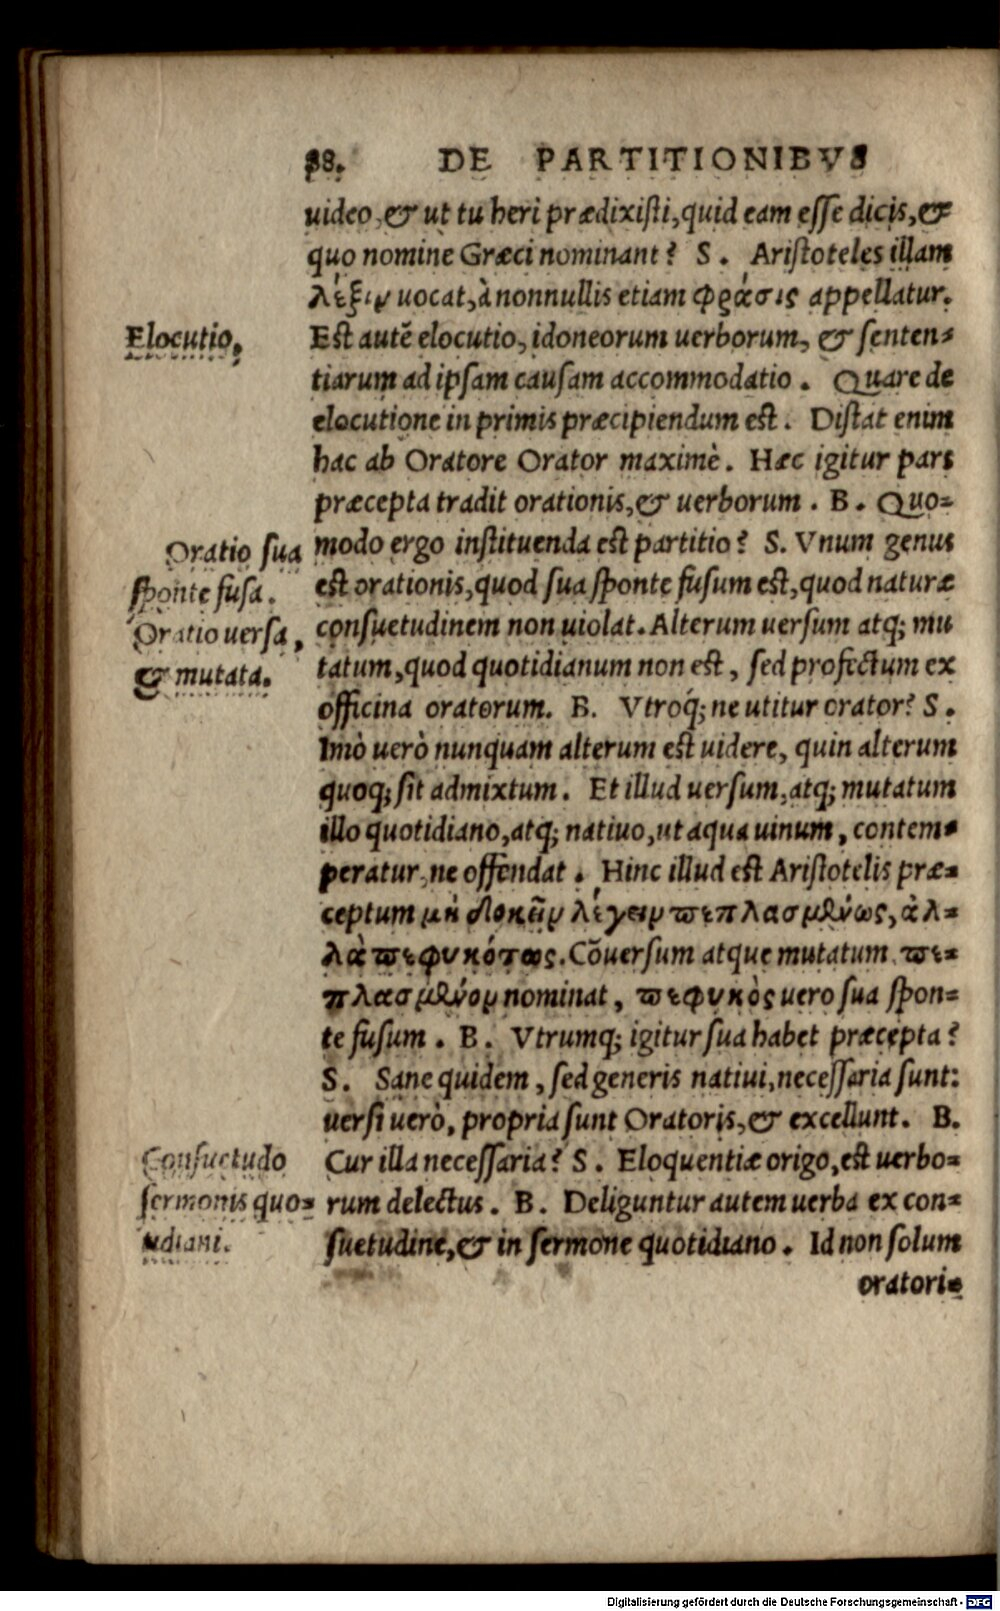 88. DE PARTITIONIBVS
uideo, & ut tu heri prædixisti, quid eam esse dicis, &
quo nomine Græci nominant? S. Aristoteles illam
λέξιν uocat, à nonnullis etiam φράσις appellatur.
Elocutio.
Est autē elocutio, idoneorum uerborum, & senten=
tiarum ad ipsam causam accommodatio. Quare de
elocutione in primis præcipiendum est. Distat enim
hac ab Oratore Orator maximè. Hæc igitur pars
præcepta tradit orationis, & uerborum. B. Quo=
Oratio sua
sponte fusa.
Oratio uersa,
& mutata.
modo ergo instituenda est partitio? S. Vnum genus
est orationis, quod sua sponte fusum est, quod naturæ
consuetudinem non uiolat. Alterum uersum atq; mu
tatum, quod quotidianum non est, sed profectum ex
officina oratorum. B. Vtroq́; ne utitur orator? S.
Imò uerò nunquam alterum est uidere, quin alterum
quoq; sit admixtum. Et illud uersum, atq; mutatum
illo quotidiano, atq; natiuo, ut aqua uinum, contem=
peratur, ne offendat. Hinc illud est Aristotelis præ=
ceptum μὴ δοκεῖν λέγειν πεπλασμένως, ἀλ=
λὰ πεφυκότως. Cōuersum atque mutatum πε=
πλασμένον nominat, πεφυκὸς uero sua spon=
te fusum. B. Vtrumq; igitur sua habet præcepta?
S. Sane quidem, sed generis natiui, necessaria sunt:
uersi uerò, propria sunt Oratoris, & excellunt. B.
Consuetudo
sermonis quo=
tidiani.
Cur illa necessaria? S. Eloquentiæ origo, est uerbo=
rum delectus. B. Deliguntur autem uerba ex con=
suetudine, & in sermone quotidiano. Id non solum
oratori=
Digitalisierung gefördert durch die Deutsche Forschungsgemeinschaft - DFG